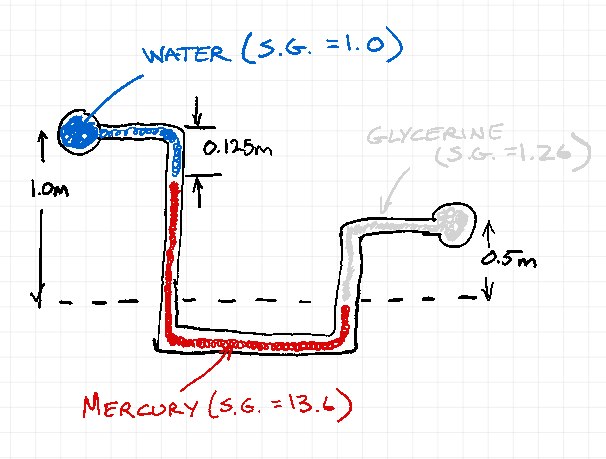 WATER (S.G. = 1.0)
0.125m
GLYCERINE
(S.G. = 1.26)
1.0m
0.5m
MERCURY (S.G. = 13.6)